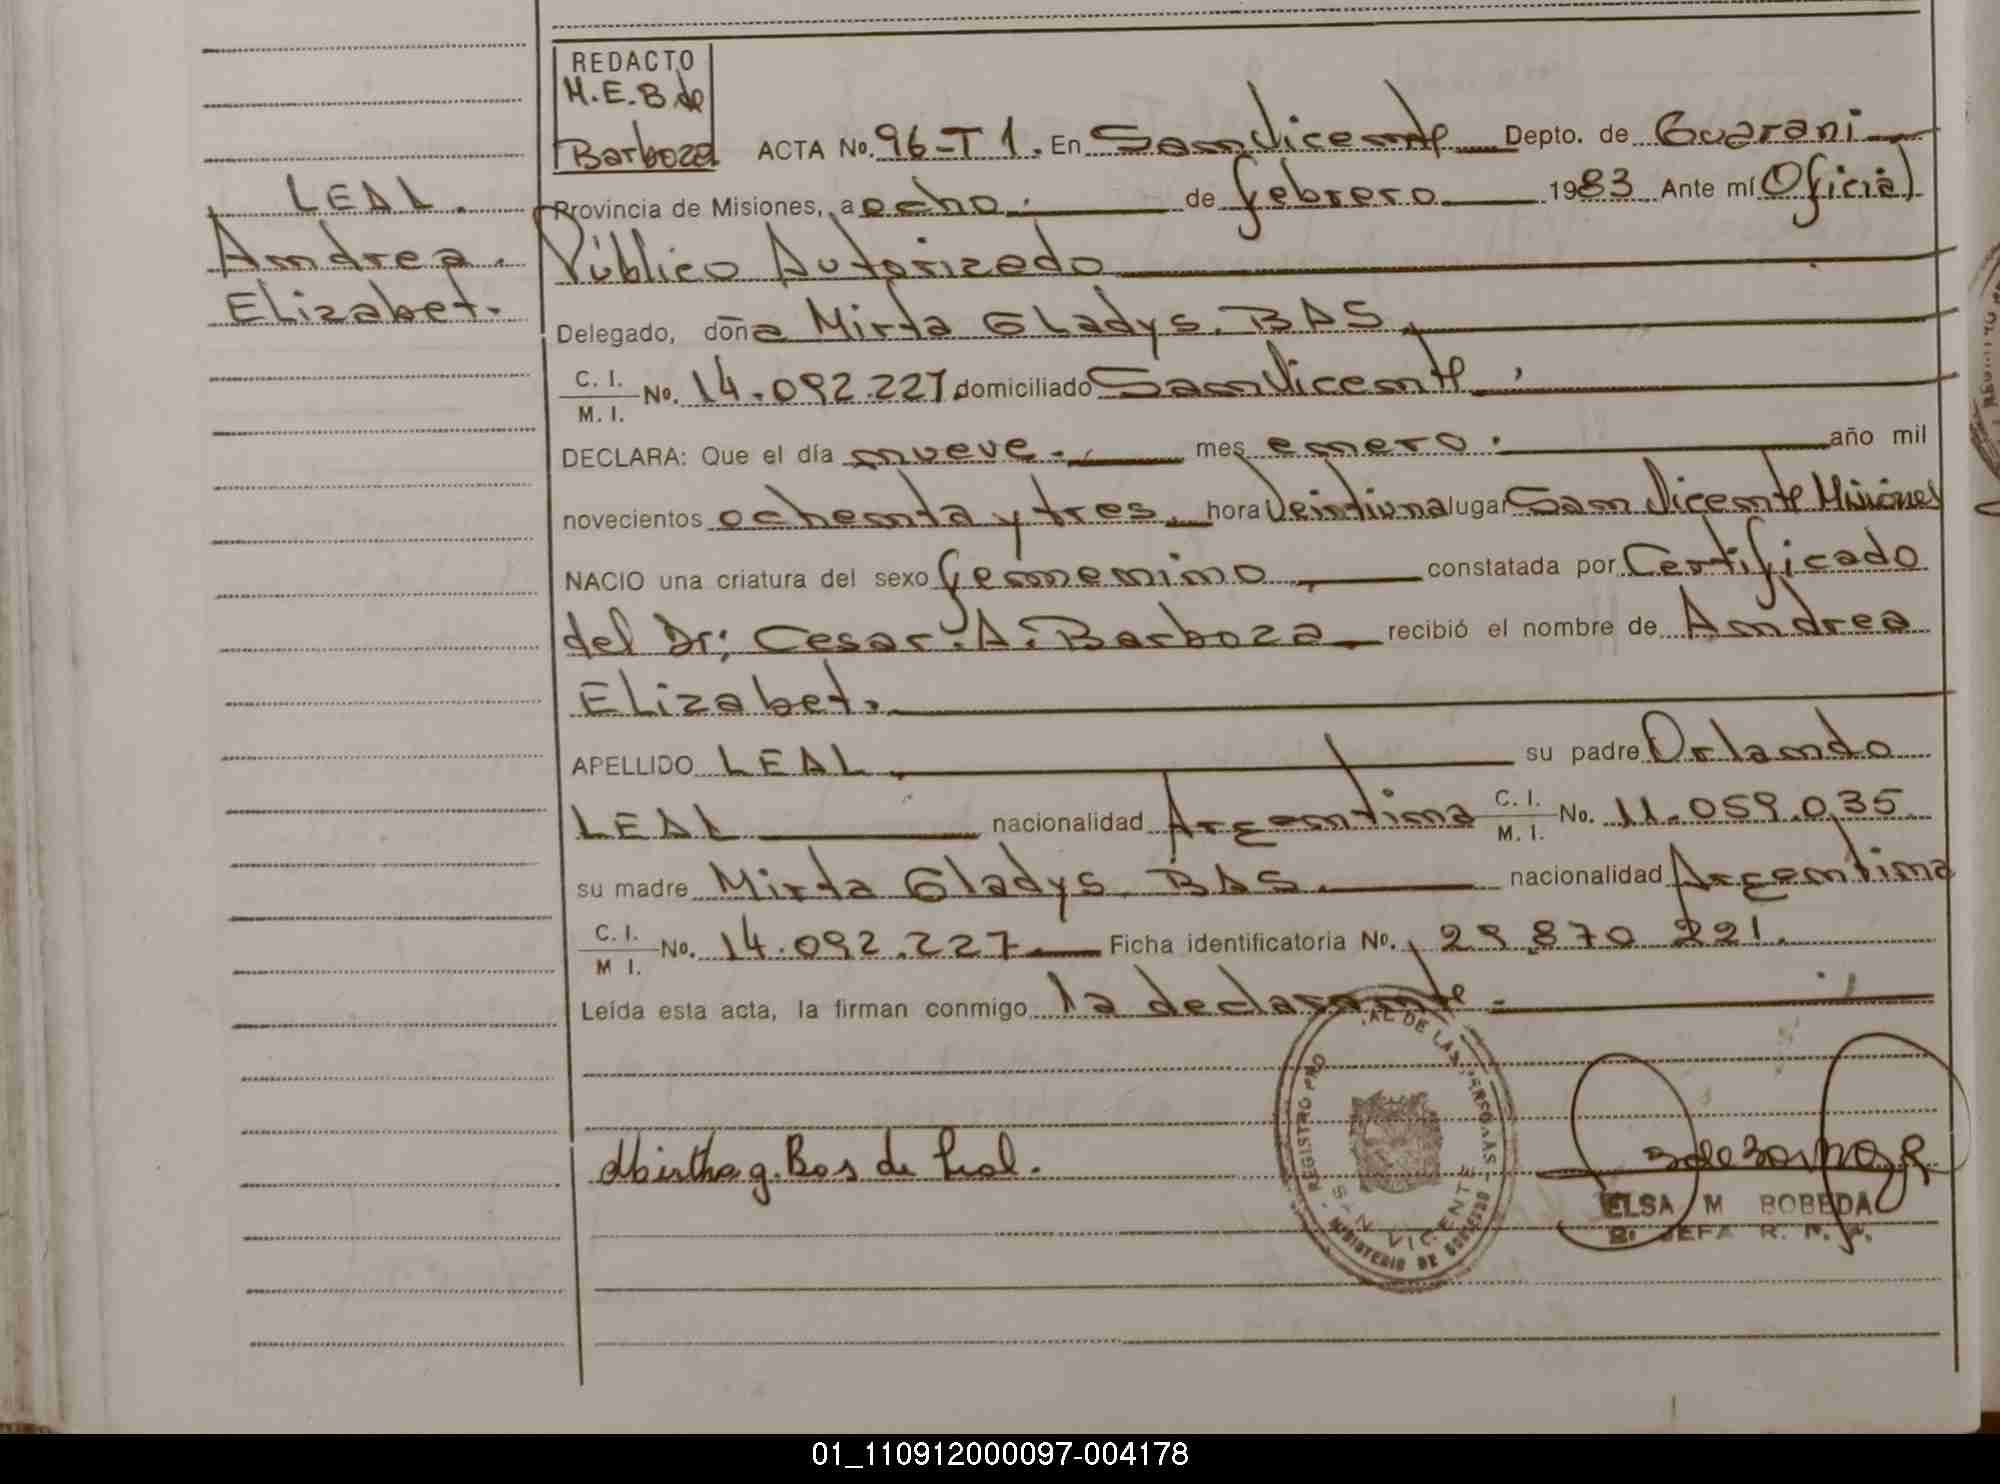 REDACTO
M.E.B de
Barboza
ACTA No. 96-T1. En San Vicente Depto. de Guarani
LEAL.
Provincia de Misiones, a ocho. de febrero 1983 Ante mí Oficial
Andrea.
Público Autorizado
Elizabet.
Delegado, doña Mirta Gladys. BAS.
C. I.
M. I. No. 14.092.227. domiciliado San Vicente.
DECLARA: Que el día nueve. mes enero. año mil
novecientos ochenta y tres. hora Veintiuna lugar San Vicente Misiones
NACIO una criatura del sexo femenino, constatada por Certificado
del Dr; Cesar. A. Barboza recibió el nombre de Andrea
Elizabet.
APELLIDO LEAL. su padre Orlando
LEAL nacionalidad Argentina C. I. M. I. No. 11.059.035.
su madre Mirta Gladys. BAS. nacionalidad Argentina
C. I.
M I. No. 14.092.227. Ficha identificatoria No. 29.870 221.
Leída esta acta, la firman conmigo la declarante.
REGISTRO PRO AL DE LAS PERSONAS
SAN VICENTE
MINISTERIO DE GOBIERNO
Mirtha g. Bas de Leal.
ELSA M BOBEDA
JEFA R. P.
01_110912000097-004178